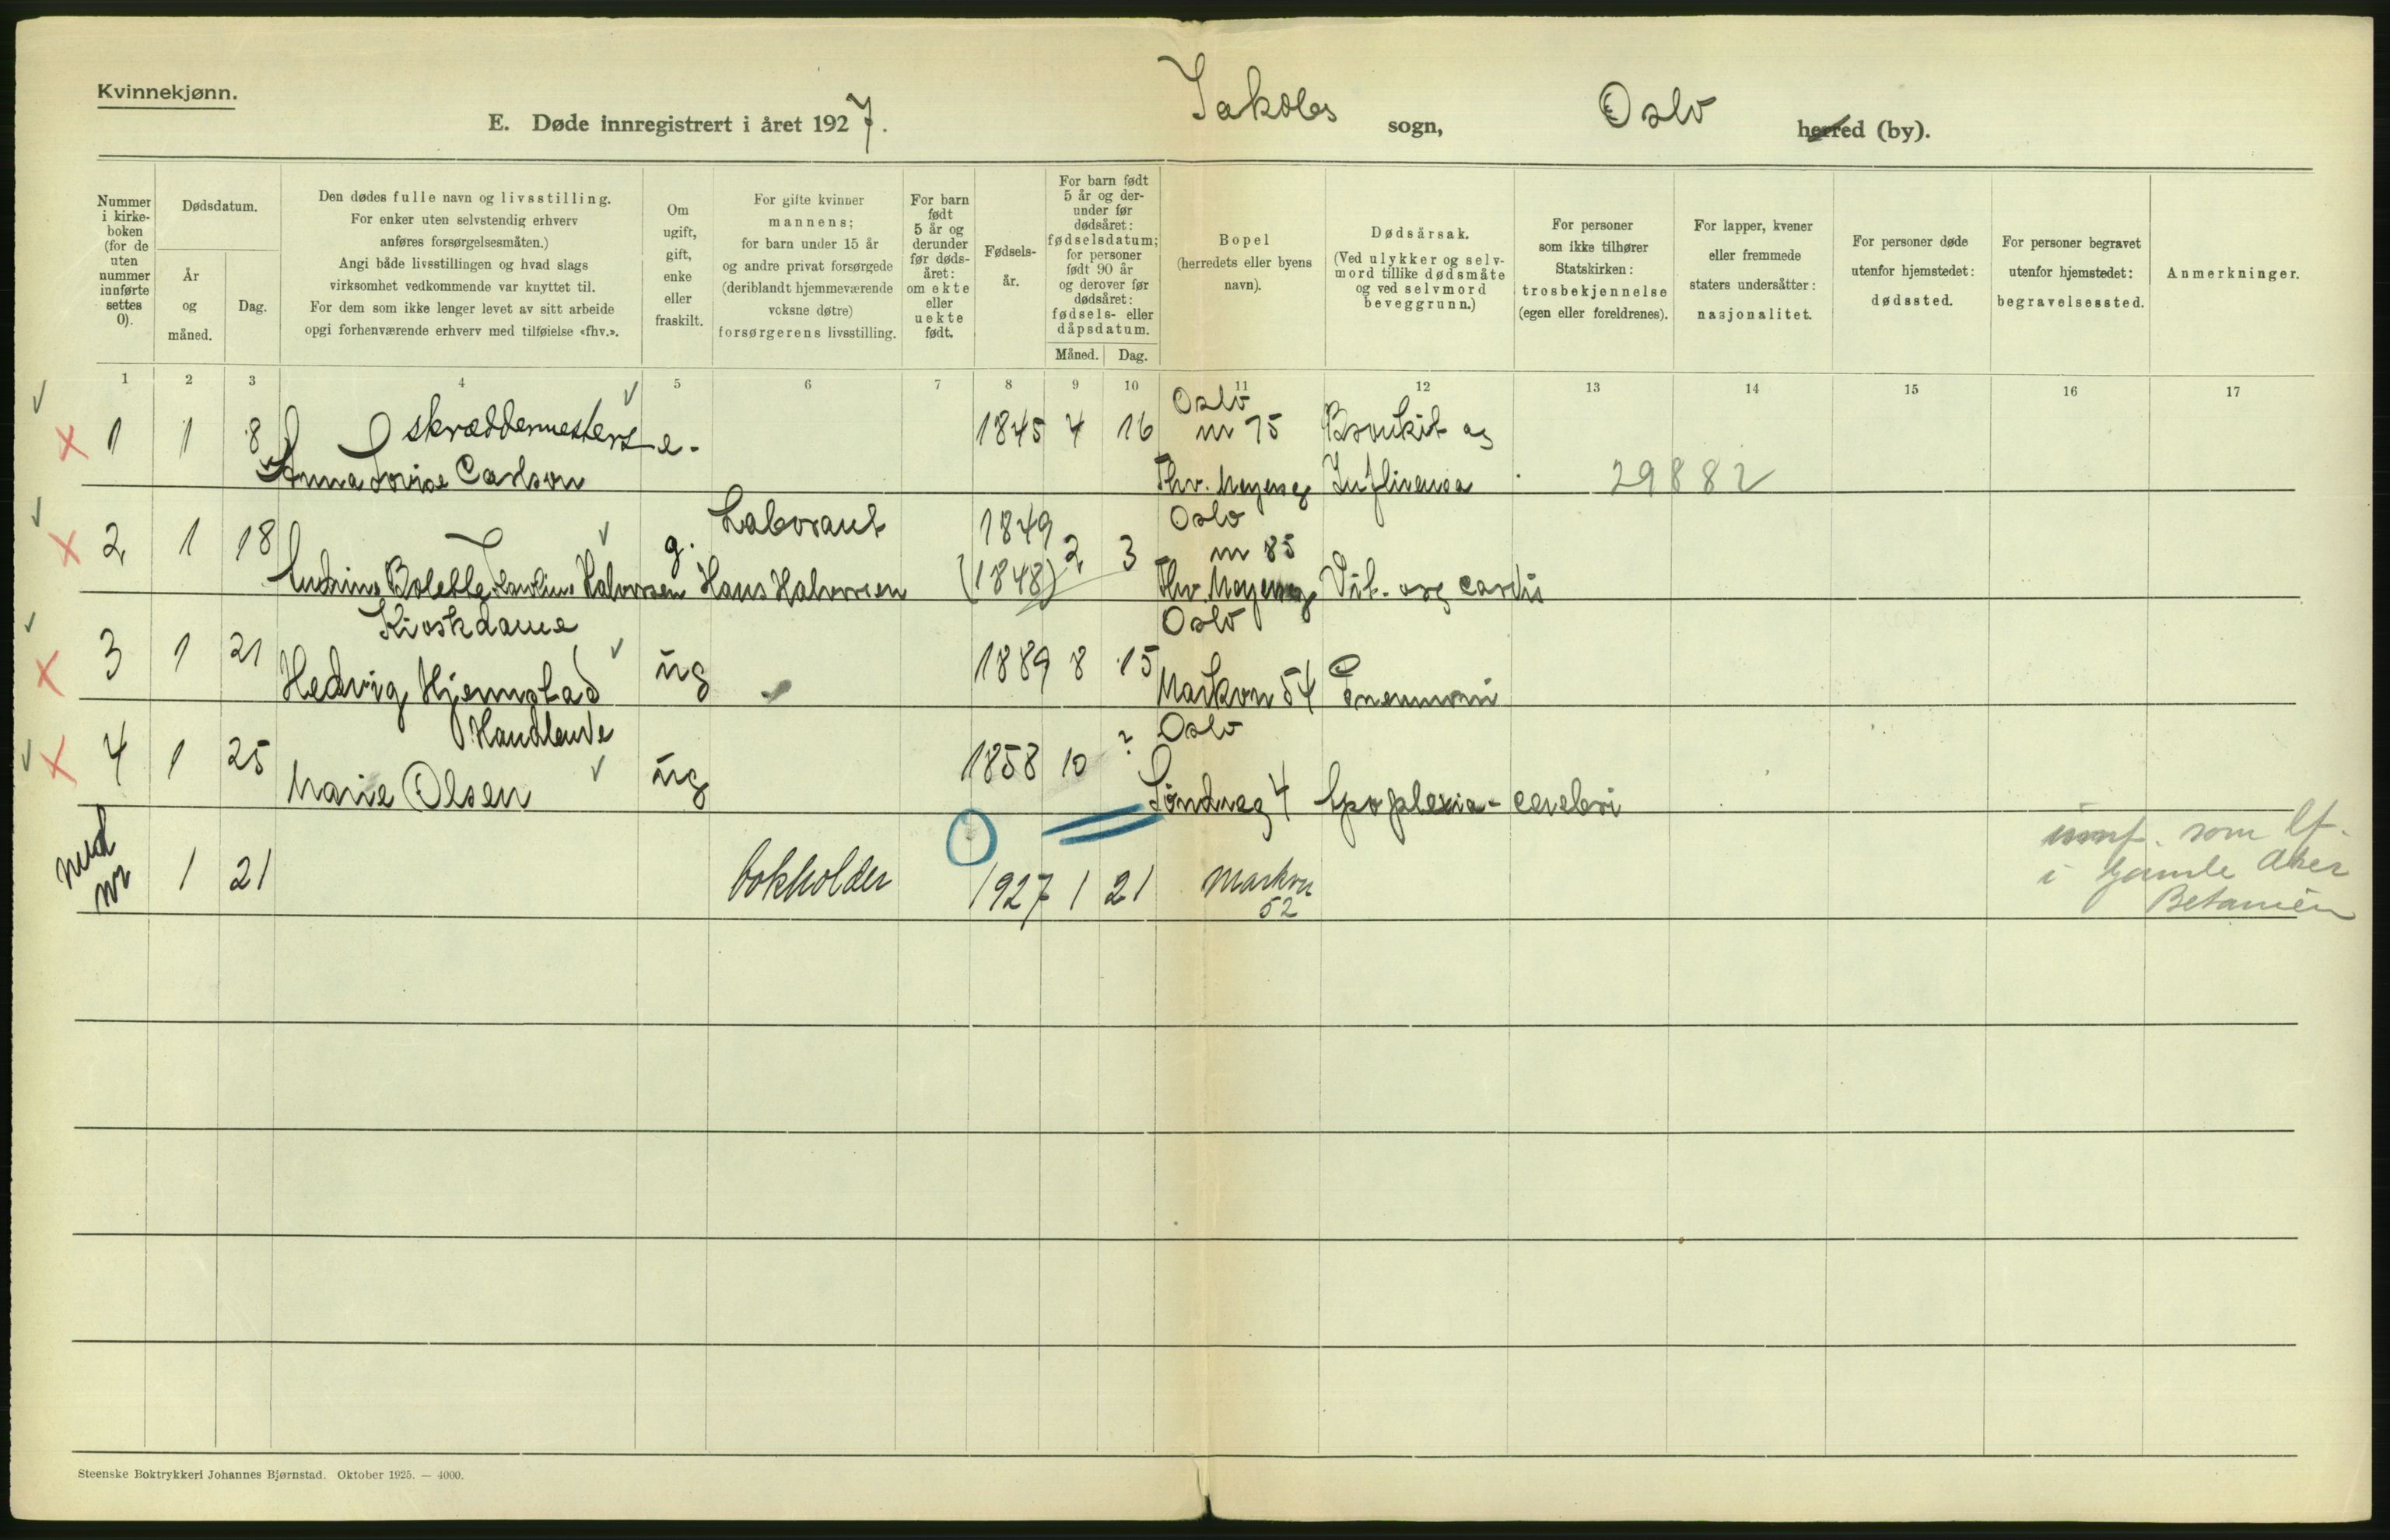 Kvinnekjønn.
E. Døde innregistrert i året 1927. Jakobs sogn, Oslo herred (by).
Nummer i kirke- boken (for de uten nummer innførte settes 0).
Dødsdatum.
År og måned.
Dag.
Den dødes fulle navn og livsstilling.
For enker uten selvstendig erhverv
anføres forsørgelsesmåten.)
Angi både livsstillingen og hvad slags
virksomhet vedkommende var knyttet til.
For dem som ikke lenger levet av sitt arbeide
opgi forhenværende erhverv med tilføielse «fhv.».
Om
ugift,
gift,
enke
eller
fraskilt.
For gifte kvinner
mannens;
for barn under 15 år
og andre privat forsørgede
(deriblandt hjemmeværende
voksne døtre)
forsørgerens livsstilling.
For barn
født
5 år og
derunder
før døds-
året:
om ekte
eller
uekte
født.
Fødsels-
år.
For barn født
5 år og der-
under før
dødsåret:
fødselsdatum;
for personer
født 90 år
og derover før
dødsåret:
fødsels- eller
dåpsdatum.
Måned. Dag.
Bopel
(herredets eller byens
navn).
Dødsårsak.
(Ved ulykker og selv-
mord tillike dødsmåte
og ved selvmord
beveggrunn.)
For personer
som ikke tilhører
Statskirken:
trosbekjennelse
(egen eller foreldrenes).
For lapper, kvener
eller fremmede
staters undersåtter:
nasjonalitet.
For personer døde
utenfor hjemstedet:
dødssted.
For personer begravet
utenfor hjemstedet:
begravelsessted.
Anmerkninger.
1 2 3 4 5 6 7 8 9 10 11 12 13 14 15 16 17
skræddermesters Oslo
1 1 8 e. 1845 4 16 nr 75 Bronkit og
Anna Lovise Carlson Thv. Meyersg Influensa 29882
Laborant 1849 Oslo
2 1 18 g. 2 3 nr 85
Bolette Karoline Halvorsen Hans Halvorsen (1848) Thv. Meyersg Vit. org cordis
Kioskdame Oslo
3 1 21 ug 1889 8 15
Hedvig Hjemstad Markvn 54 Pneumoni
Handlende ? Oslo
4 1 25 ug 1858 10
Marie Olsen 4 Apoplexia cerebri
uten
nr 1 21 bokholder 1927 1 21 Markvn
52
innf. som lf.
i Gamle Aker
Betanien
Steenske Boktrykkeri Johannes Bjørnstad. Oktober 1925. — 4000.